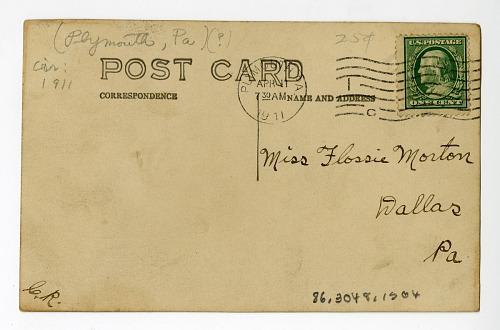 (Plymouth, Pa)(?)
25¢
cir:
1911
POST CARD
CORRESPONDENCE
NAME AND ADDRESS
APR 11
7 30 AM
1911
1
C
U.S. POSTAGE
ONE CENT
Miss Flossie Morton
Dallas
Pa.
C.R.
86.3048.1504